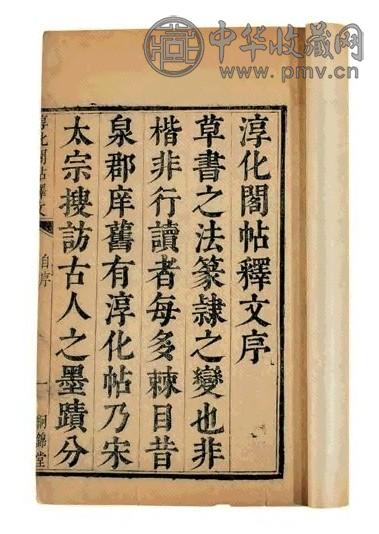 中华收藏网
www.pmv.cn
淳化閣帖釋文序
草書之法篆隷之變也非
楷非行讀者每多棘目昔
泉郡庠舊有淳化帖乃宋
太宗搜訪古人之墨蹟分
淳化閣帖釋文
自序
一
錦堂